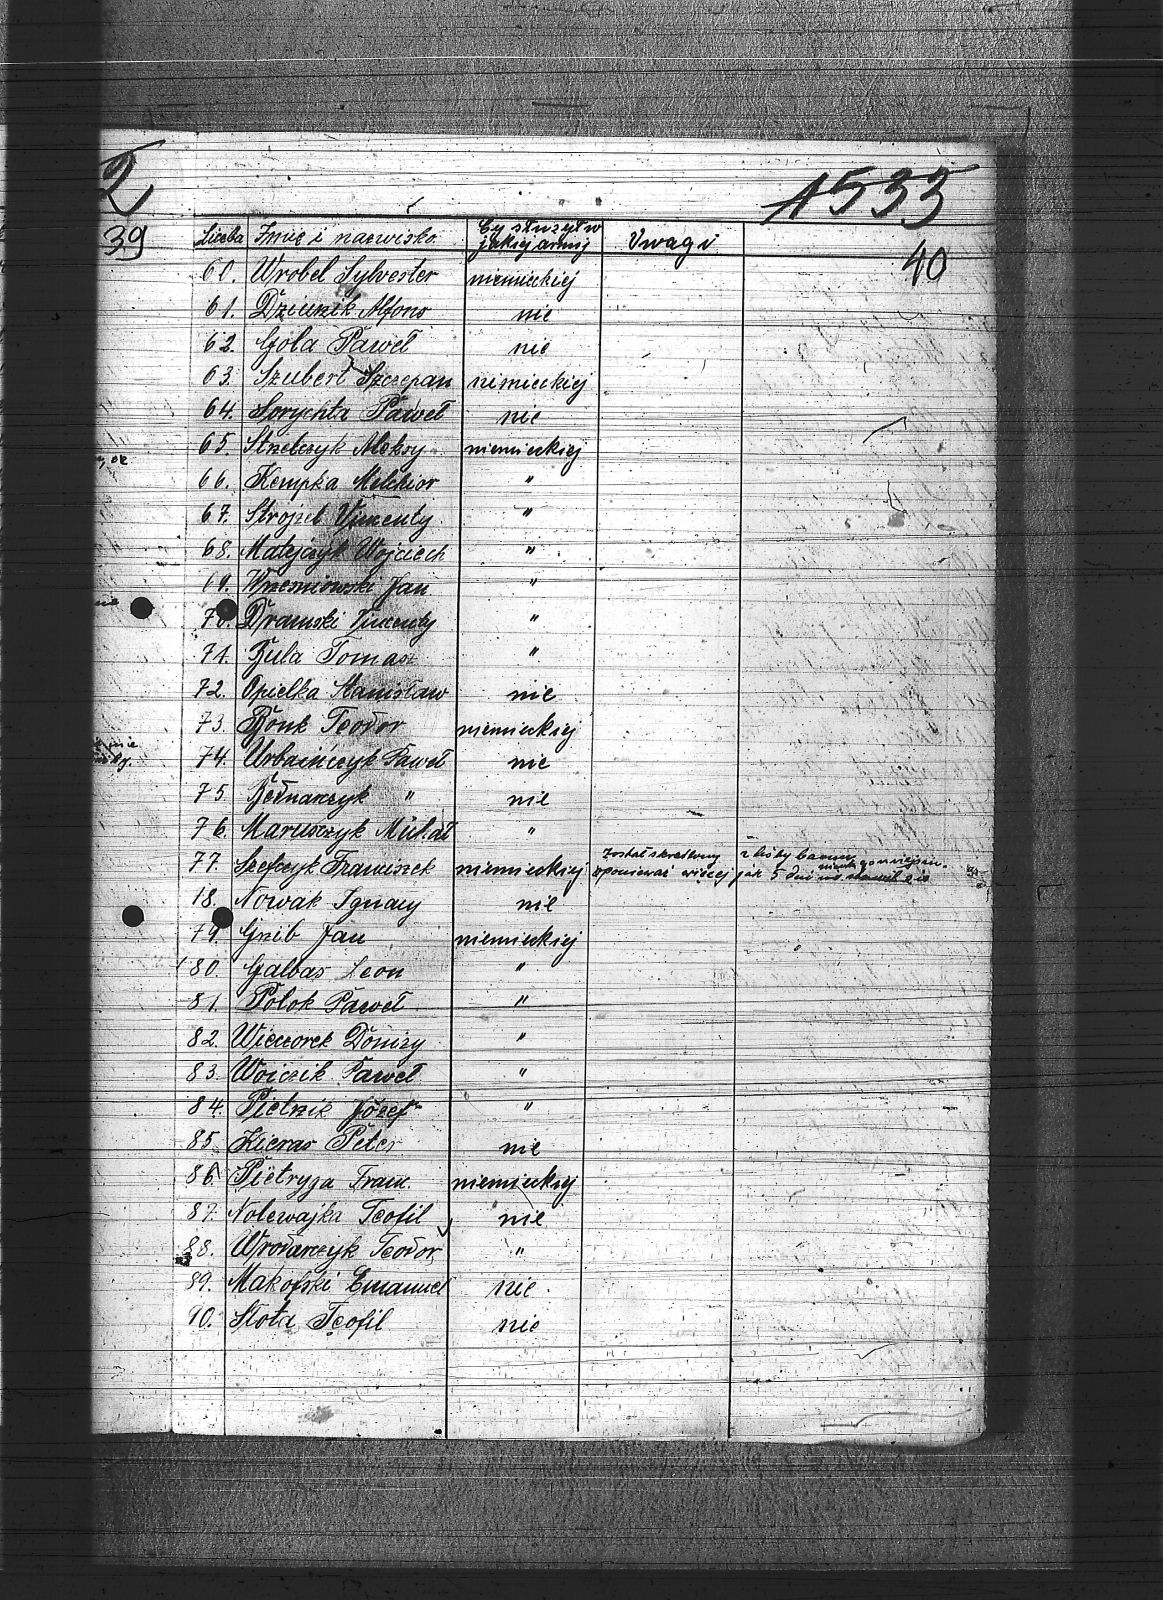 2
A533
39
40
Liczba Imię i nazwisko Czy służył w jakiej armij Uwagi
60. Wrobel Sylvester niemieckiej
61. Dziunik Alfons nie
62. Gola Paweł nie
63. Szubert Szczepan nimieckiej
64. Sorychta Paweł nie
65. Strzelczyk Aleksy niemieckiej
66. Kempka Melchior "
67. Strojzel Vincenty "
68. Matejczyk Wojciech "
69. Wrzesniowski Jan "
70. Dramski Vincenty "
71. Bula Tomasz "
72. Opielka Stanisław nie
73. Bonk Teodor niemieckiej
74. Urbaińczyk Paweł nie
75. Bednarzyk " nie
76. Maruszyk Michał "
77. Szefczyk Franciszek niemieckiej został skreślony z listy więcej jak 5 dni
78. Nowak Ignacy nie
79. Gnib Jan niemieckiej
80. Galbas Leon "
81. Polok Paweł "
82. Wieczorek Dönizy "
83. Woiczik Paweł "
84. Pietznik Józef "
85. Kieras Peter nie
86. Pietryga Franc. niemieckiej
87. Nolewajka Teofil nie
88. Wrodarczyk Teodor "
89. Makofski Emanuel nie
90. Slota Teofil nie